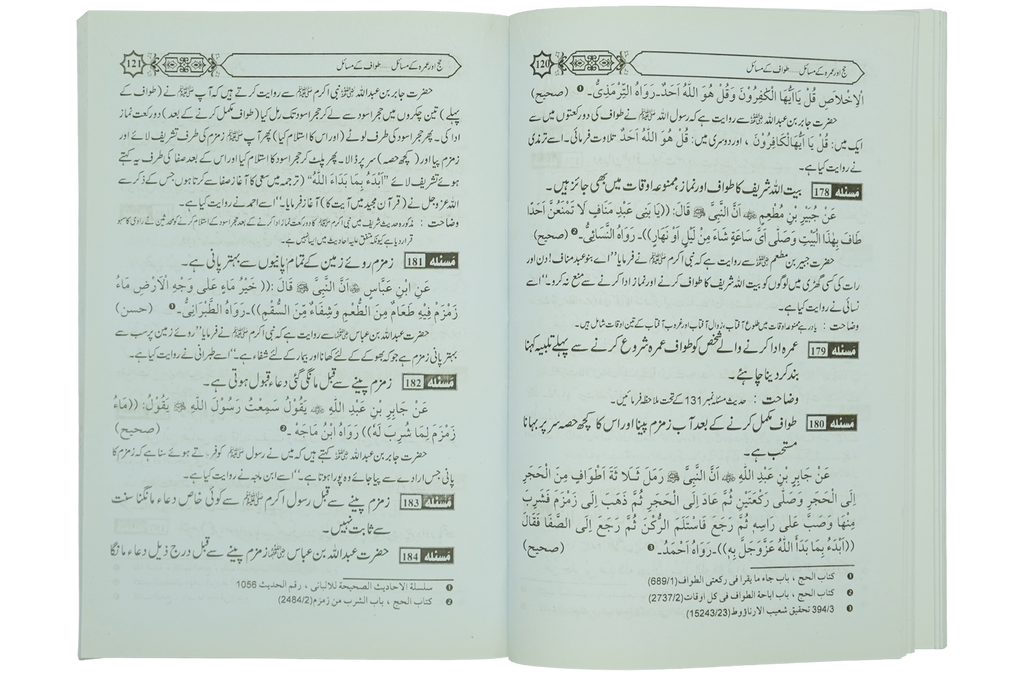 حج اور عمرہ کے مسائل ..... طواف کے مسائل
120
الْاِخْلَاصِ قُلْ يَاَيُّهَا الْكٰفِرُوْنَ وَقُلْ هُوَ اللّٰهُ اَحَدٌ۔ رَوَاهُ التِّرْمِذِىُّ۔ ❶ (صحیح)
حضرت جابر بن عبداللہ ؓ سے روایت ہے کہ رسول اللہ ﷺ نے طواف کی دو رکعتوں میں سے
ایک میں: قُلْ يَا اَيُّهَا الْكَافِرُوْنَ ، اور دوسری میں: قُلْ هُوَ اللّٰهُ اَحَدٌ تلاوت فرمائی۔ اسے ترمذی
نے روایت کیا ہے۔
مسئله 178 بیت اللہ شریف کا طواف اور نماز ممنوعہ اوقات میں بھی جائز ہیں۔
عَنْ جُبَيْرِ بْنِ مُطْعِمٍ ؓ اَنَّ النَّبِىَّ ﷺ قَالَ: ((يَا بَنِى عَبْدِ مَنَافٍ لَا تَمْنَعُنَّ اَحَدًا
طَافَ بِهٰذَا الْبَيْتِ وَصَلّٰى اَىَّ سَاعَةٍ شَاءَ مِنْ لَيْلٍ اَوْ نَهَارٍ))۔ رَوَاهُ النَّسَائِىُّ۔ ❷ (صحیح)
حضرت جبیر بن مطعم ؓ سے روایت ہے کہ نبی اکرم ﷺ نے فرمایا ”اے بنو عبد مناف! دن اور
رات کی کسی گھڑی میں لوگوں کو بیت اللہ شریف کا طواف کرنے اور نماز ادا کرنے سے منع نہ کرو۔“ اسے
نسائی نے روایت کیا ہے۔
وضاحت : یاد رہے ممنوعہ اوقات میں طلوع آفتاب، زوال آفتاب اور غروب آفتاب کے تین اوقات شامل ہیں۔
مسئله 179 عمرہ ادا کرنے والے شخص کو طواف عمرہ شروع کرنے سے پہلے تلبیہ کہنا
بند کر دینا چاہئے۔
وضاحت : حدیث مسئلہ نمبر 131 کے تحت ملاحظہ فرمائیں۔
مسئله 180 طواف مکمل کرنے کے بعد آب زمزم پینا اور اس کا کچھ حصہ سر پر بہانا
مستحب ہے۔
عَنْ جَابِرِ بْنِ عَبْدِ اللّٰهِ ؓ اَنَّ النَّبِىَّ ﷺ رَمَلَ ثَلَا ثَةَ اَطْوَافٍ مِنَ الْحَجَرِ
اِلَى الْحَجَرِ وَصَلّٰى رَكْعَتَيْنِ ثُمَّ عَادَ اِلَى الْحَجَرِ ثُمَّ ذَهَبَ اِلَى زَمْزَمَ فَشَرِبَ
مِنْهَا وَصَبَّ عَلٰى رَاسِهٖ ثُمَّ رَجَعَ فَاسْتَلَمَ الرُّكْنَ ثُمَّ رَجَعَ اِلَى الصَّفَا فَقَالَ
((اَبْدَءُ بِمَا بَدَأَ اللّٰهُ عَزَّوَجَلَّ بِهٖ))۔ رَوَاهُ اَحْمَدُ۔ ❸ (صحیح)
❶ کتاب الحج ، باب جاء ما یقرا فی رکعتی الطواف (689/1)
❷ کتاب الحج ، باب اباحة الطواف فی کل اوقات (2737/2)
❸ 394/3 تحقیق شعیب الارناؤوط (15243/23)
حج اور عمرہ کے مسائل ..... طواف کے مسائل
121
حضرت جابر بن عبداللہ ؓ نبی اکرم ﷺ سے روایت کرتے ہیں کہ آپ ﷺ نے (طواف کے
پہلے) تین چکروں میں حجر اسود سے لے کر حجر اسود تک رمل کیا (طواف مکمل کرنے کے بعد) دو رکعت نماز
ادا کی۔ پھر حجر اسود کی طرف لوٹے (اور اس کا استلام کیا) پھر آپ ﷺ زمزم کی طرف تشریف لائے اور
زمزم پیا اور (کچھ حصہ) سر پر ڈالا۔ پھر پلٹ کر حجر اسود کا استلام کیا اور اس کے بعد صفا کی طرف یہ کہتے
ہوئے تشریف لائے ”اَبْدَءُ بِمَا بَدَاءَ اللّٰهُ“ (ترجمہ میں سعی کا آغاز صفا سے کرتا ہوں جس کے ذکر سے
اللہ عزوجل نے (قرآن مجید میں آیت کا) آغاز فرمایا۔“ اسے احمد نے روایت کیا ہے۔
وضاحت : مذکورہ حدیث شریف میں نبی اکرم ﷺ کا دو رکعت نماز ادا کرنے کے بعد حجر اسود کا استلام کرنے کو محدثین نے راوی کا سہو
قرار دیا ہے کیونکہ متفق علیہ احادیث میں ایسا نہیں ہے۔
مسئله 181 زمزم روئے زمین کے تمام پانیوں سے بہتر پانی ہے۔
عَنِ ابْنِ عَبَّاسٍ ؓ اَنَّ النَّبِىَّ ﷺ قَالَ: ((خَيْرُ مَاءٍ عَلٰى وَجْهِ الْاَرْضِ مَاءُ
زَمْزَمَ فِيْهِ طَعَامٌ مِنَ الطُّعْمِ وَشِفَاءٌ مِنَ السُّقْمِ))۔ رَوَاهُ الطَّبْرَانِىُّ۔ ❶ (حسن)
حضرت عبداللہ بن عباس ؓ سے روایت ہے کہ نبی اکرم ﷺ نے فرمایا ”روئے زمین پر سب سے
بہتر پانی زمزم ہے جو کہ بھوکے کے لئے کھانا اور بیمار کے لئے شفاء ہے۔“ اسے طبرانی نے روایت کیا ہے۔
مسئله 182 زمزم پینے سے قبل مانگی گئی دعاء قبول ہوتی ہے۔
عَنْ جَابِرِ بْنِ عَبْدِ اللّٰهِ ؓ يَقُوْلُ سَمِعْتُ رَسُوْلَ اللّٰهِ ﷺ يَقُوْلُ: ((مَاءُ
زَمْزَمَ لِمَا شُرِبَ لَهُ)) رَوَاهُ ابْنُ مَاجَهْ۔ ❷ (صحیح)
حضرت جابر بن عبداللہ ؓ کہتے ہیں کہ میں نے رسول اکرم ﷺ کو فرماتے ہوئے سنا ہے کہ زمزم کا
پانی جس ارادے سے پیا جائے وہ پورا ہوتا ہے۔“ اسے ابن ماجہ نے روایت کیا ہے۔
مسئله 183 زمزم پینے سے قبل رسول اکرم ﷺ سے کوئی خاص دعاء مانگنا سنت
سے ثابت نہیں۔
مسئله 184 حضرت عبداللہ بن عباس ؓ زمزم پینے سے قبل درج ذیل دعاء مانگا
❶ سلسلة الاحادیث الصحیحة للالبانی ، رقم الحدیث 1056
❷ کتاب الحج ، باب الشرب من زمزم (2484/2)